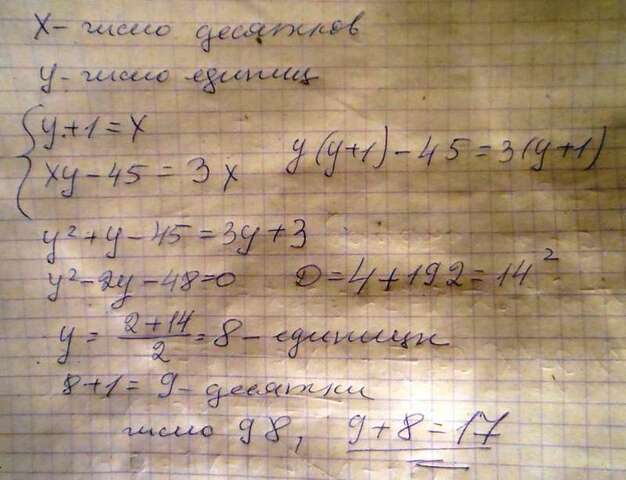 х - число десятков
у - число единиц
{ у + 1 = х
ху - 45 = 3х    у(у+1) - 45 = 3(у+1)
у² + у - 45 = 3у + 3
у² - 2у - 48 = 0    D = 4 + 192 = 14²
у = (2+14)/2 = 8 - единицы
8 + 1 = 9 - десятки
число 98, 9 + 8 = 17